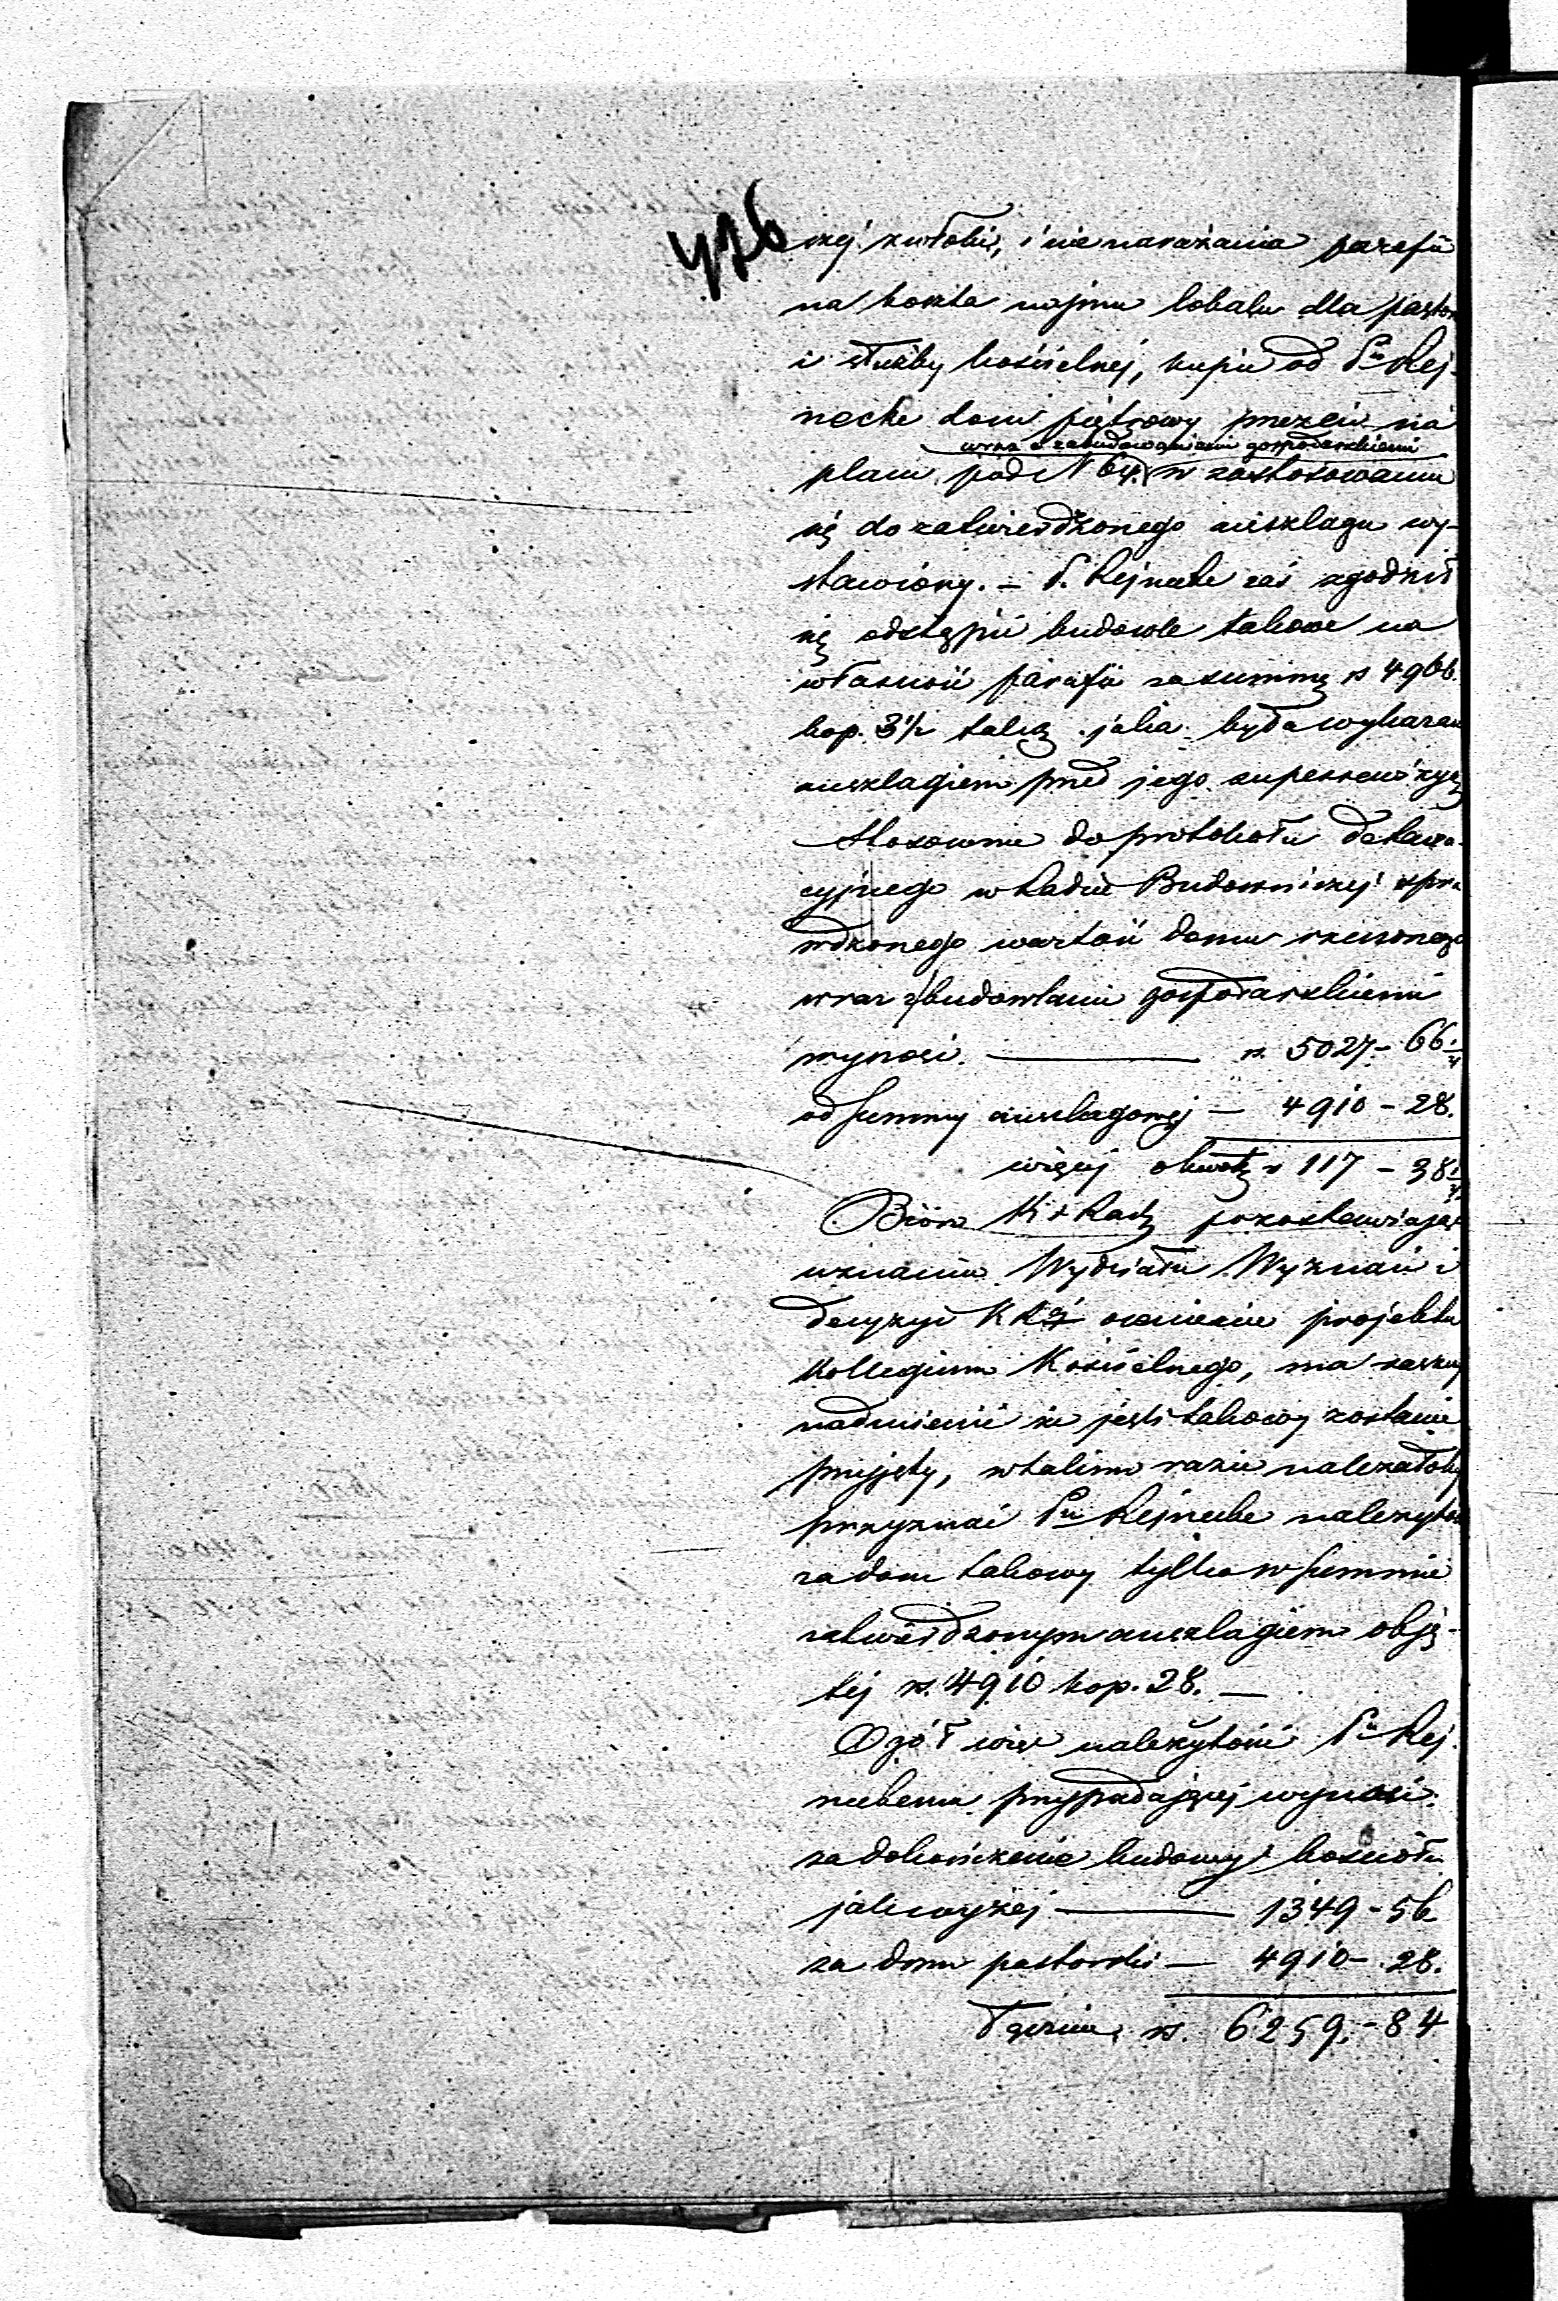 476
szej zwłoki, i nie narażania parafii
na koszta najmu lokalu dla pastora
i służby kościelnej, kupić od Pa Rej-
necke dom piętrowy przezeń na
wraz z zabudowaniami gospodarskiemi
placu pod N 64. w zastosowaniu
się do zatwierdzonego anszlagu wy-
stawiony. – P. Rejnecke zaś zgodził
się odstąpić budowle takowe na
własność parafii za summę rs 4966.
kop. 3½ taką jaka była wykazan
anszlagiem przed jego superrewizyą
Stosownie do protokołu detaxa-
cyjnego w Radzie Budowniczej spra
wdzonego wartość domu rzeczonego
wraz z budowlami gospodarskiemi
wynosi. — rs. 5027 – 66.
od summy anszlagowej — 4910 – 28.
więcej o kwotę rs 117 – 38
Bióro K i Rady pozostawiając
uznaniu Wydziału Wyznań i
decyzyi K R ocenienie projektu
Kollegium Kościelnego, ma zaszczyt
nadmienić że jeśli takowy zostanie
przyjęty, w takim razie należałoby
przyznać Pu Rejnecke należytość
za dom takowy tylko w summie
zatwierdzonym anszlagiem obję-
tej rs. 4910 kop. 28. —
Ogół więc należytości Pu Rej-
neckemu przypadającej wynosi.
za dokończenie budowy kościoła
jak wyżej — 1349 – 56
za dom pastorski — 4910 – 28.
Łącznie rs. 6259. – 84